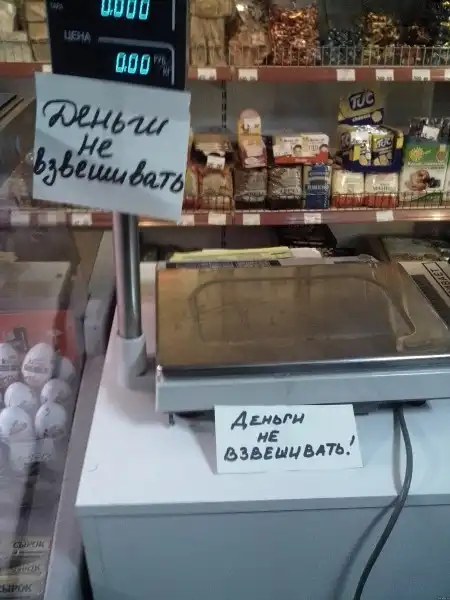 0.000
ЦЕНА
0.00
Деньги
не
взвешивать
TUC
Деньги
не
взвешивать!
СЫРОК
СЫРОК